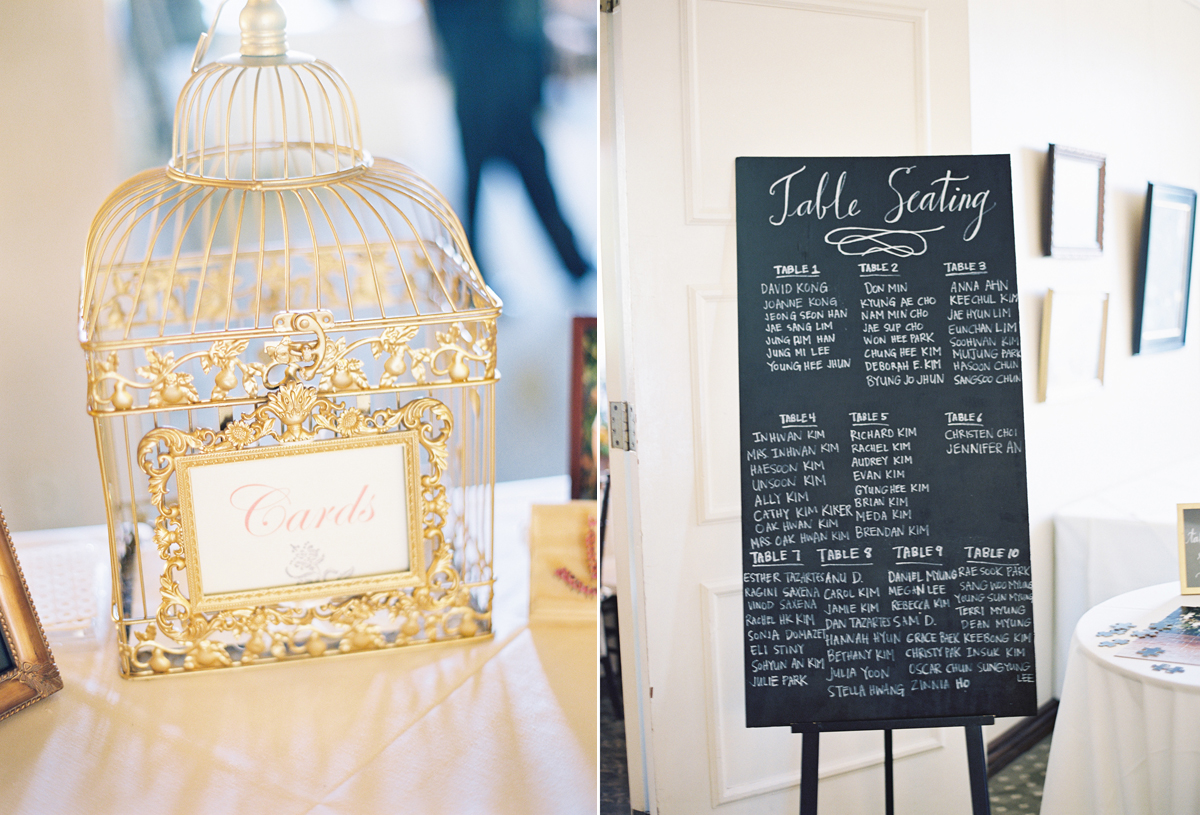 Cards
Table Seating
TABLE 1
DAVID KONG
JOANNE KONG
JEONG SEON HAN
JAE SANG LIM
JUNG RIM HAN
JUNG MI LEE
YOUNG HEE JHUN
TABLE 2
DON MIN
KYUNG AE CHO
NAM MIN CHO
JAE SUP CHO
WON HEE PARK
CHUNG HEE KIM
DEBORAH E. KIM
BYUNG JO JHUN
TABLE 3
ANNA AHN
KEECHUL KIM
JAE HYUN LIM
EUNCHAN LIM
SOOHWAN KIM
MUJUNG PARK
HASOON CHUN
SANGSOO CHUN
TABLE 4
INHWAN KIM
MRS INHWAN KIM
HAESOON KIM
UNSOON KIM
ALLY KIM
CATHY KIM KIKER
OAK HWAN KIM
MRS OAK HWAN KIM
TABLE 5
RICHARD KIM
RACHEL KIM
AUDREY KIM
EVAN KIM
GYUNG HEE KIM
BRIAN KIM
MEDA KIM
BRENDAN KIM
TABLE 6
CHRISTEN CHOI
JENNIFER AN
TABLE 7
ESTHER TAZARTES
RAGINI SAXENA
VINOD SAXENA
RACHEL HK KIM
SONJA DUMAZET
ELI STINY
SOHYUN AN KIM
JULIE PARK
TABLE 8
ANU D.
CAROL KIM
JAMIE KIM
DAN TAZARTES
HANNAH HYUN
BETHANY KIM
JULIA YOON
STELLA HWANG
TABLE 9
DANIEL MYUNG
MEGAN LEE
REBECCA KIM
SAM D.
GRACE BAEK
CHRISTY PAK
OSCAR CHUN
ZINNIA HO
TABLE 10
RAE SOOK PARK
SANG WOO MYUNG
YOUNG SUN MYUNG
TERRI MYUNG
DEAN MYUNG
KEEBONG KIM
INSUK KIM
SUNGYUNG
LEE